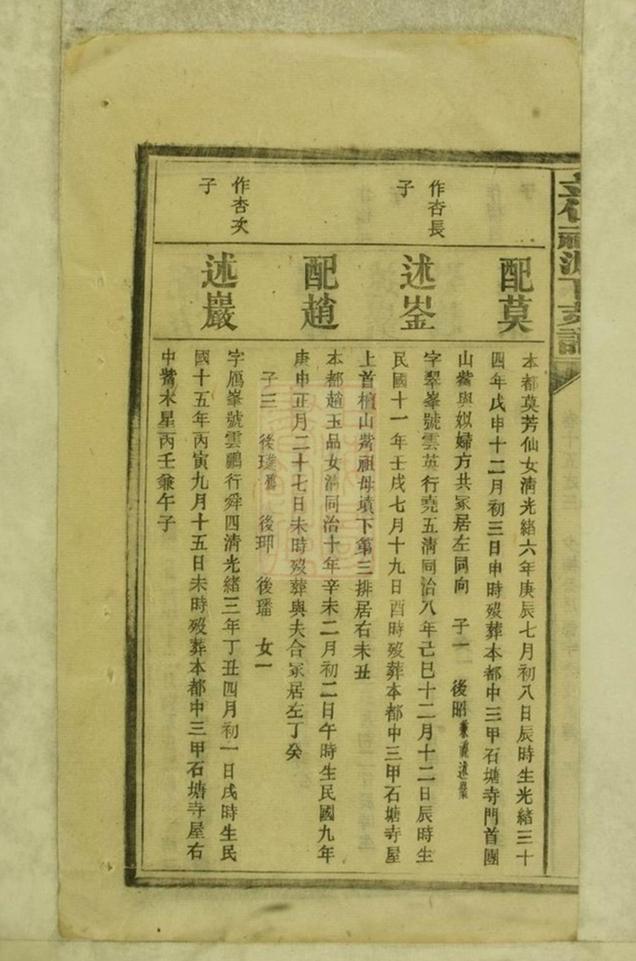 配莫
本都莫芳仙女清光緒六年庚辰七月初八日辰時生光緒三十
四年戊申十二月初三日申時歿葬本都中三甲石塘寺門首團
山觜與姒婦方共冢居左同向 子一 後昭兼祧述巖
作杏長
子
述崟
字翠峯號雲英行堯五清同治八年己巳十二月十二日辰時生
民國十一年壬戌七月十九日酉時歿葬本都中三甲石塘寺屋
上首檀山觜祖母墳下第三排居右未丑
配趙
本都趙玉品女清同治十年辛未二月初二日午時生民國九年
庚申正月二十七日未時歿葬與夫合冢居左丁癸
子三 後 後 後璠 女一
作杏次
子
述巖
字鴈峯號雲鵬行舜四清光緒三年丁丑四月初一日戌時生民
國十五年丙寅九月十五日未時歿葬本都中三甲石塘寺屋右
中觜木星丙壬兼午子